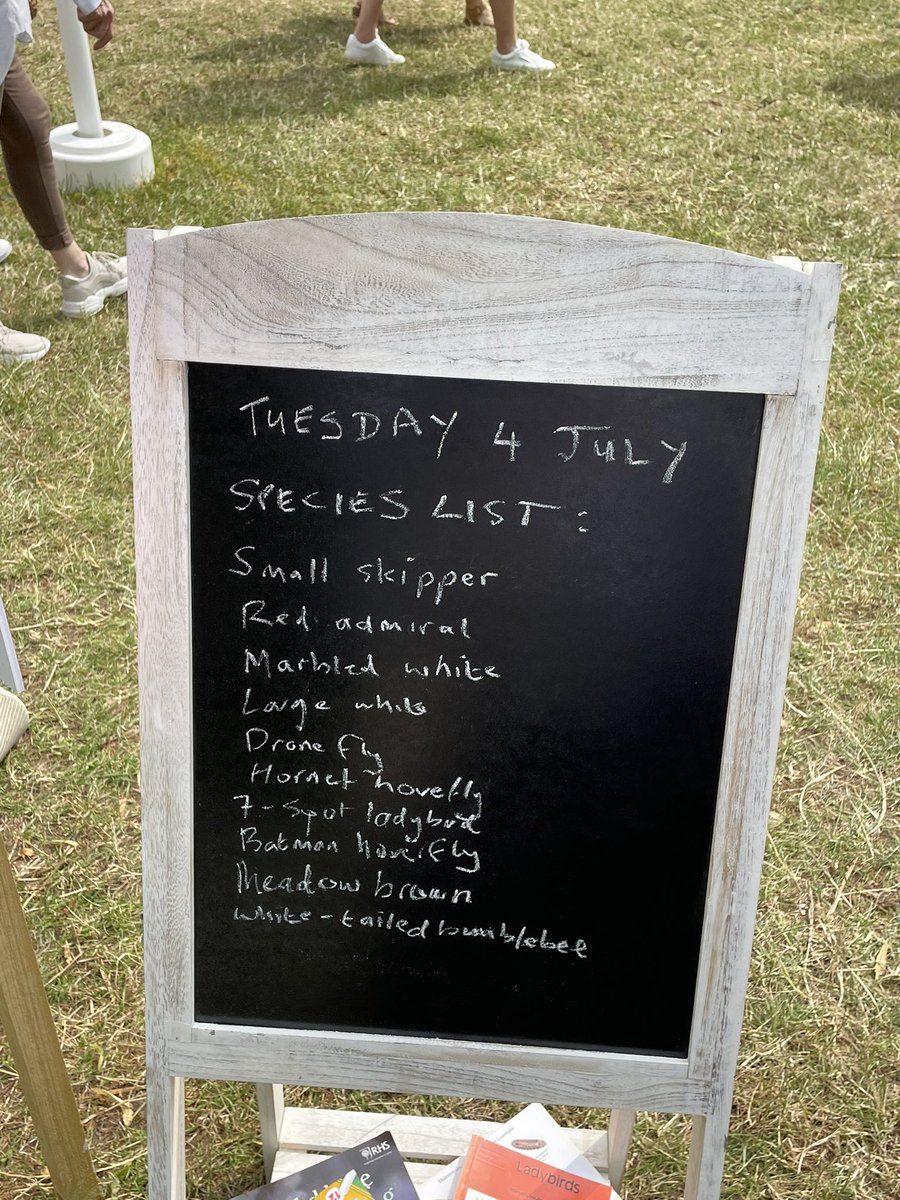 TUESDAY 4 JULY
SPECIES LIST:
Small skipper
Red admiral
Marbled white
Large white
Drone fly
Hornet hovefly
7-spot ladybird
Batman hoverfly
Meadow brown
White-tailed bumblebee
RHS
Ladybirds